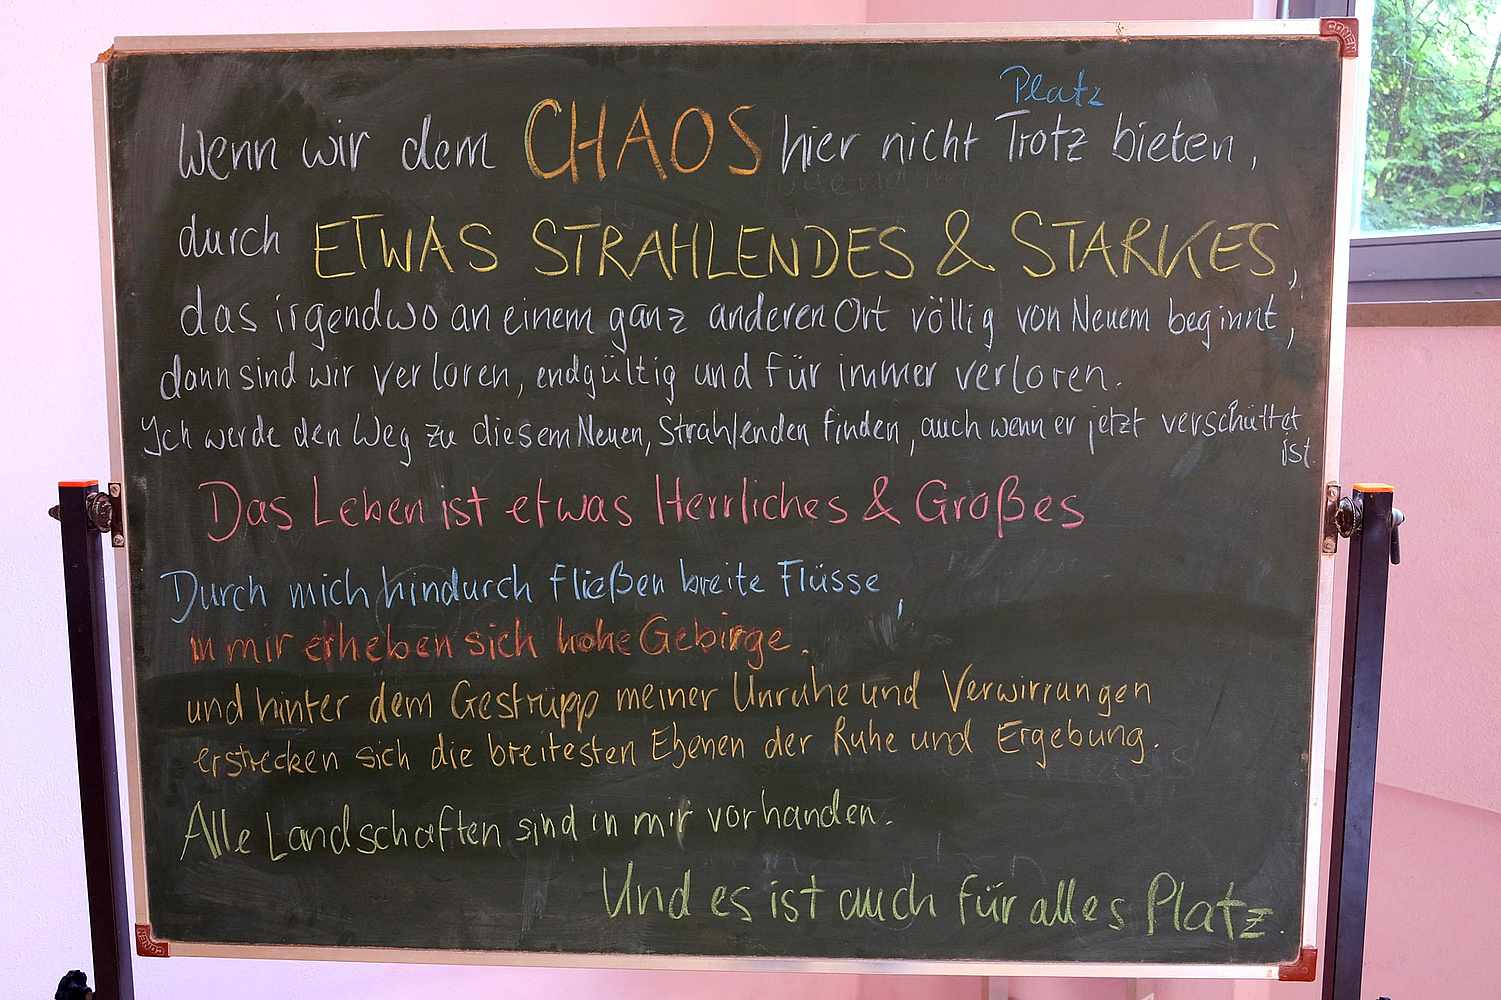 Platz
Wenn wir dem CHAOS hier nicht Trotz bieten,
durch ETWAS STRAHLENDES & STARKES,
das irgendwo an einem ganz anderen Ort völlig von Neuem beginnt,
dann sind wir verloren, endgültig und für immer verloren.
Ich werde den Weg zu diesem Neuen, Strahlenden finden, auch wenn er jetzt verschüttet
ist.
Das Leben ist etwas Herrliches & Großes
Durch mich hindurch fließen breite Flüsse,
in mir erheben sich hohe Gebirge.
und hinter dem Gestrüpp meiner Unruhe und Verwirrungen
erstrecken sich die breitesten Ebenen der Ruhe und Ergebung.
Alle Landschaften sind in mir vorhanden.
Und es ist auch für alles Platz.